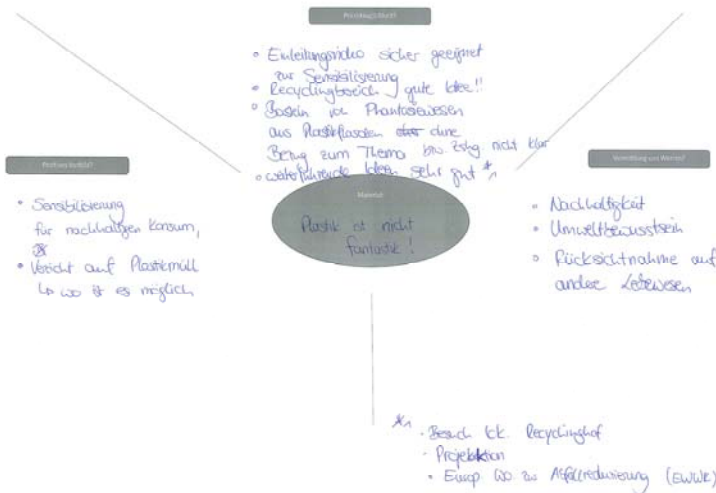 • Einleitungsvideo sicher geeignet
zur Sensibilisierung
• Recyclingbereich gute Idee!!
• Basteln von Phantasiewesen
aus Plastikflaschen ohne
Bezug zum Thema bzw. Zshg. nicht klar
• weiterführende Ideen sehr gut *1
Vermittlung von Werten?
• Sensibilisierung
für nachhaltigen Konsum,
• Verzicht auf Plastikmüll
↳ wo ist es möglich
Material
Plastik ist nicht
fantastic!
• Nachhaltigkeit
• Umweltbewusstsein
• Rücksichtnahme auf
andere Lebewesen
*1
• Besuch lok. Recyclinghof
• Projektaktion
• Europ. Wo. zur Abfallreduzierung (EWWR)